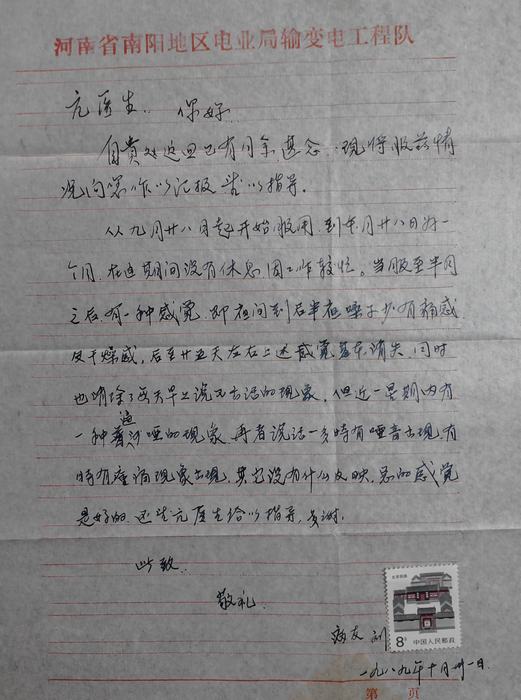 河南省南阳地区电业局输变电工程队
亢医生. 你好
自贵处返回已有月余,甚念.现将服药情
况向您作以汇报 以指导.
从九月廿八日起开始服用,到本月廿八日为一
个月.在这期间没有休息因工作较忙。当服至半月
之后,有一种感觉,即夜间到后半夜嗓子少有痛感
及干燥感,后至廿五天左右上述感觉基本消失,同时
也消除了每天早上说不出话的现象.但近一星期内有
一种 哑的现象,再者说话一多时有哑音出现,有
时有疼痛现象出现.其它没有什么反映.总的感觉
是好的.还望亢医生给以指导,多谢.
此致
敬礼
病友 刘
北京民居
8分 中国人民邮政
一九八九年十月卅一日.
第 页